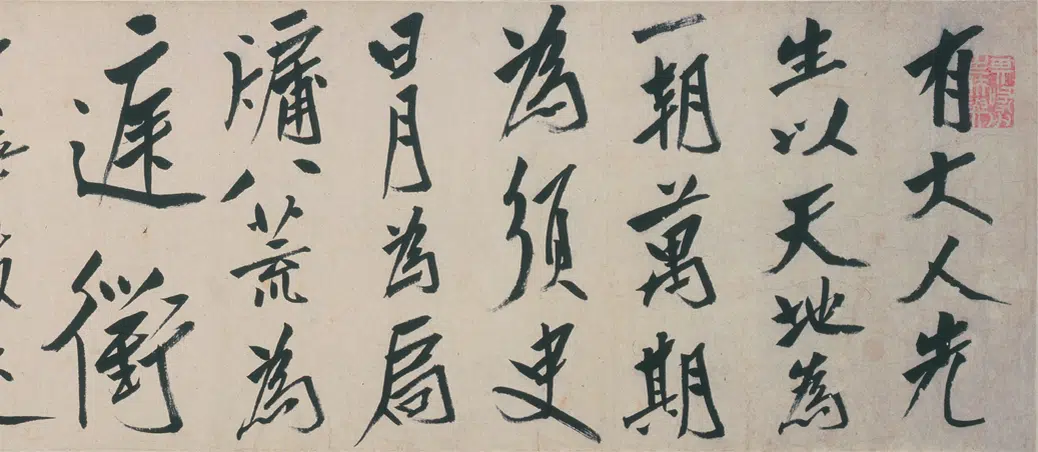 有大人先
生以天地為
一朝萬期
為須臾
日月為扃
牖八荒為
庭衢